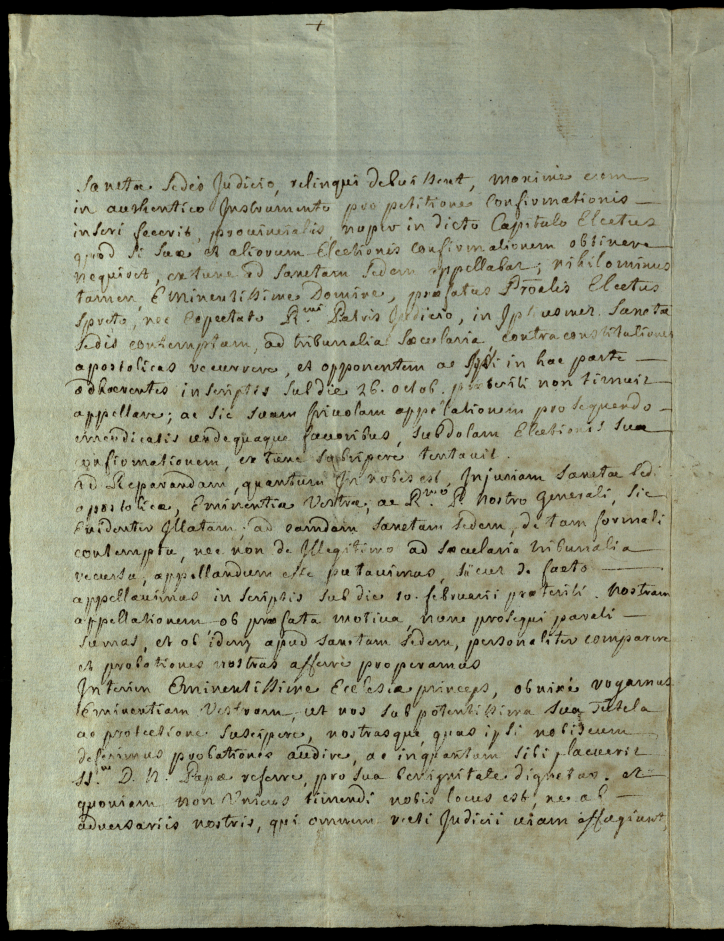 +
Sanctæ Sedis Judicio, relinqui debuissent, maxime cum
in authentico Instrumento pro petitione Confirmationis
inseri fecerit, provincialis, nuper in dicto Capitulo Electus
quod si suæ et aliorum Electionis confirmationem obtinere
nequiret, ex tunc ad Sanctam Sedem appellabat; nihilominus
tamen, Eminentissime Domine, præfatus Prætensus Electus
spreto, nec expectato R.mi Patris Judicio, in Ipsiusmet Sanctæ
Sedis contemptum, ad tribunalia Sæcularia, contra constitutiones
apostolicas recurrere, et opponentem ac sibi in hac parte
adhærentes in scriptis sub die 26. octob. præteriti non timuit
appellare; ac sic suam frivolam appellationem prosequendo
emendicatis undequaque favoribus, subdolam Electionis suæ
confirmationem, ex tunc subripere tentavit.
Ad Reparandam, quantum In nobis est, Injuriam Sanctæ Sedi
apostolicæ, Eminentiæ Vestræ, ac R.mo P. Nostro Generali, sic
Evidenter Illatam, ad eamdem Sanctam Sedem, de tam formali
contemptu, nec non de Illegitimo ad Sæcularia tribunalia
recursu, appellandum esse putavimus, sicut de facto
appellavimus in scriptis sub die 10. februarii præteriti. Nostram
appellationem ob præfata motiva, nunc prosequi parati
sumus, et ob idem apud Sanctam Sedem, personaliter comparere
et probationes nostras afferre properamus
Interim Eminentissime Ecclesiæ princeps, obnixe rogamus
Eminentiam Vestram, ut nos sub potentissima sua Tutela
ac protectione suscipere, nostrasque quas ipsi nobiscum
deferimus probationes audire, ac inquantum sibi placuerit
SS.mo D. N. Papæ referre, pro sua benignitate dignetur. et
quoniam non Unicus timendi nobis locus est, ne ab
adversariis nostris, qui omnem recti Judicii viam effugiunt,